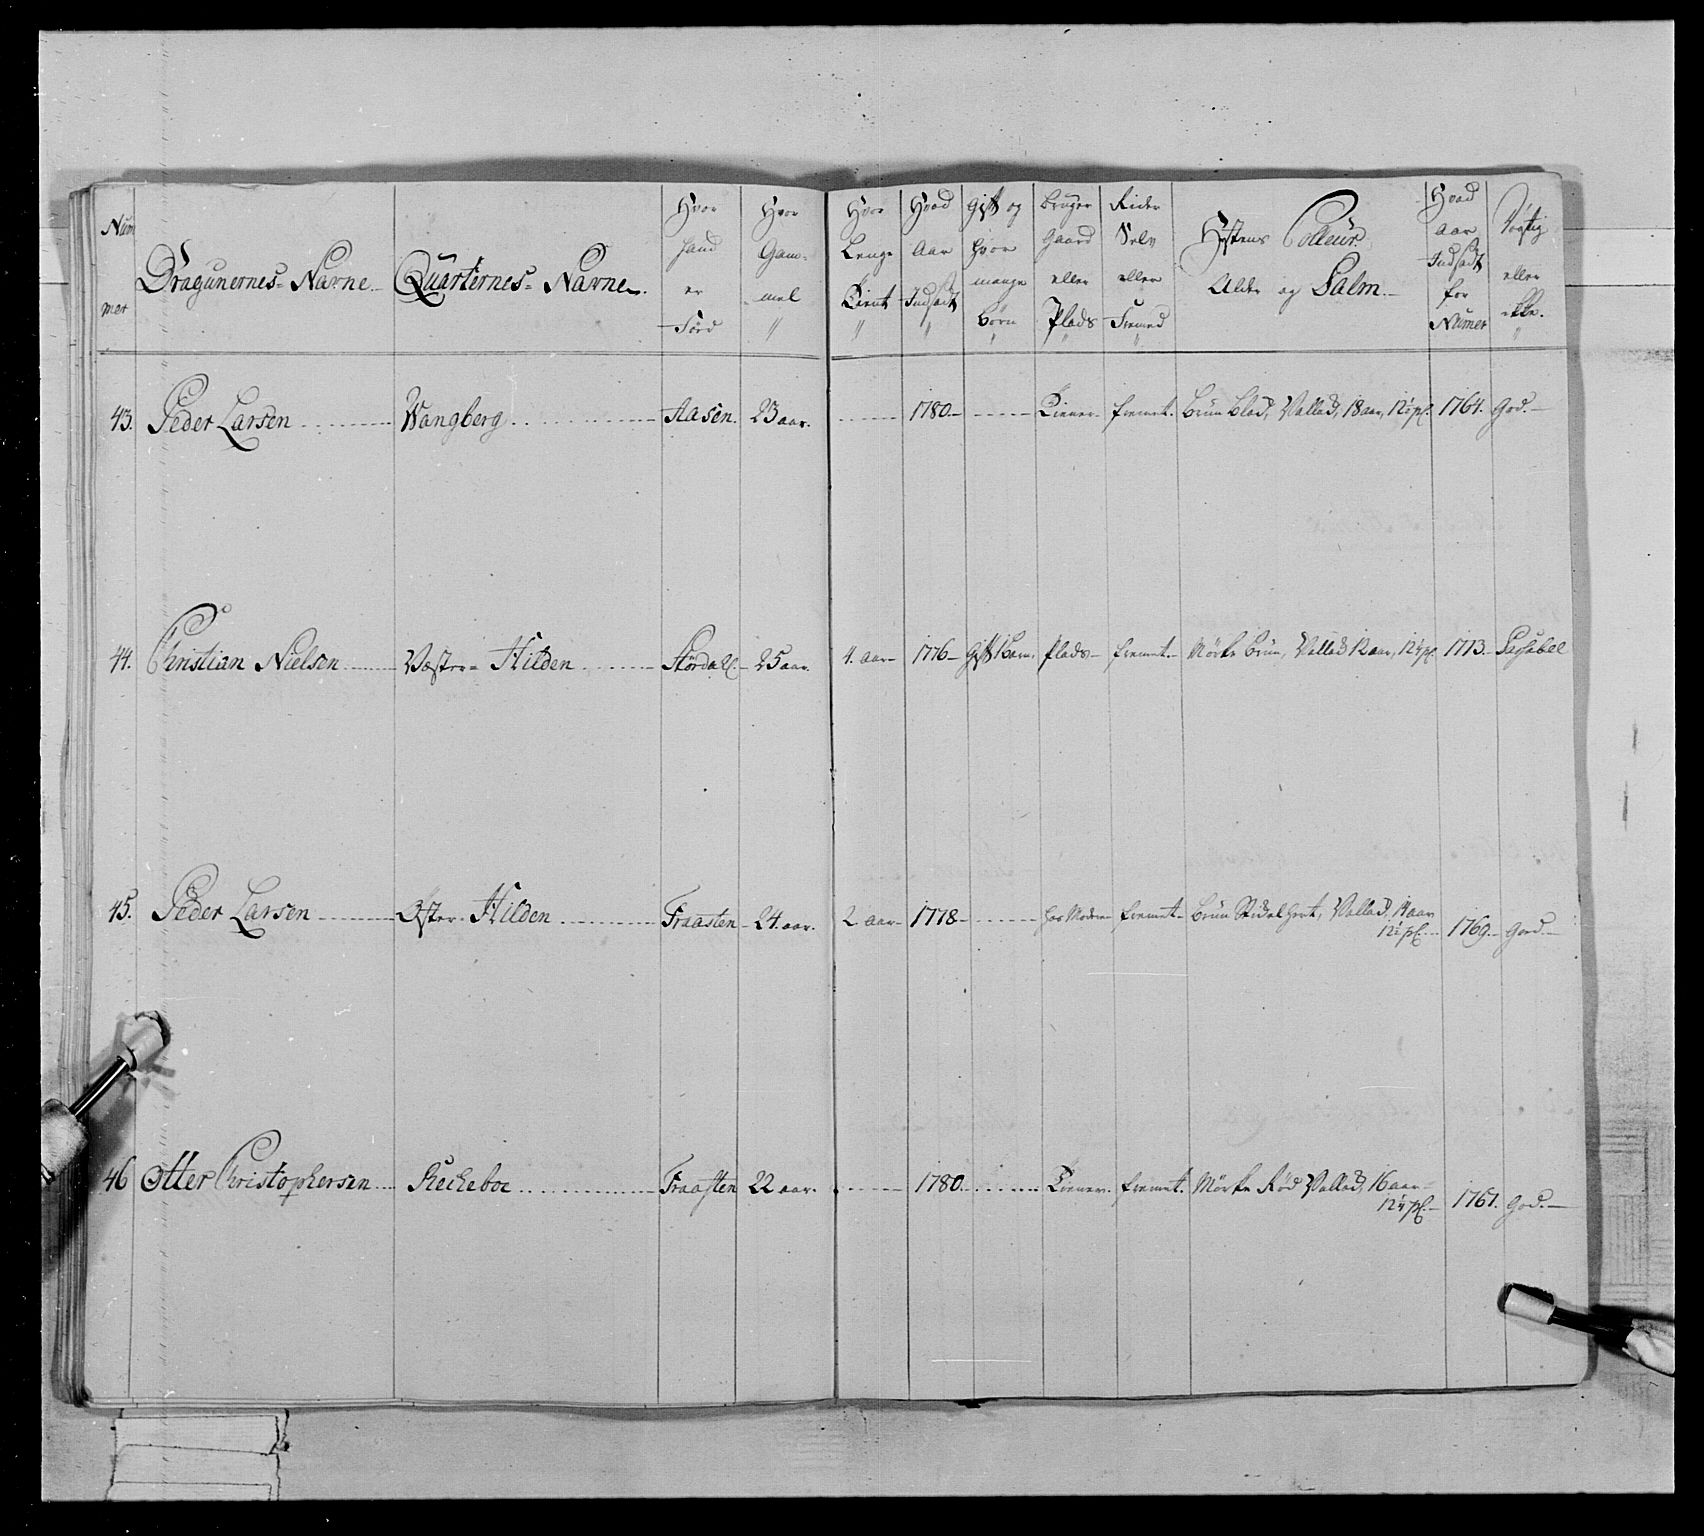 Num
mer
Dragunernes Navne
Quarternes Navne
Hvor
hand
er
Förd
Hvor
Gam=
mel
Hvor
Lenge
Tient
Hvad
Aar
Indsadt
Gift og
hvor
mange
Börn
Bruger
Gaard
eller
Plads
Rider
Selv
eller
Fremed
Hestens Colleur
Alder og Palm.
Hvad
aar
Indsadt
for
Numer
eller
ikke.
43. Peder Larsen Wangberg Aasen. 23 aar. 1780 Tiener fremet. Brun Blesd, Vallack, 18 aar, 12½ pl. 1764. God.
44. Christian Nielsen Væster= Hilden Stördall. 25 aar. 4. aar 1776 Gift 1 Barn. Plads fremet. Mörke Brun, Vallack 12 aar, 12¼ pl. 1773. Pasabel
45. Peder Larsen Öster Hilden Fraasten 24. aar. 2 aar 1778 hos Moder fremet Brun Stickelhaaret, Vallack, 14 aar
12½ pl. 1769. God.
46 Otter Christophersen Reckeboe Fraasten 22 aar. 1780. Tiener fremet. Mörke Röd Vallack, 16 aar
12¼ pl. 1767. God.